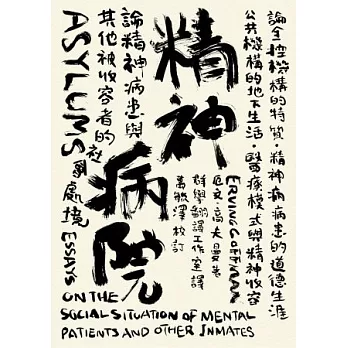 論全控機構的特質・精神病病患的道德生涯
公共機構的地下生活・醫療模式與精神收容
ERVING GOFFMAN
厄文・高夫曼著
群學翻譯工作室譯
萬毓澤校訂
精神
病院
論精神病患與
其他被收容者的社會處境
ASYLUMS
ESSAYS
ON THE
SOCIAL SITUATION OF MENTAL
PATIENTS AND OTHER INMATES